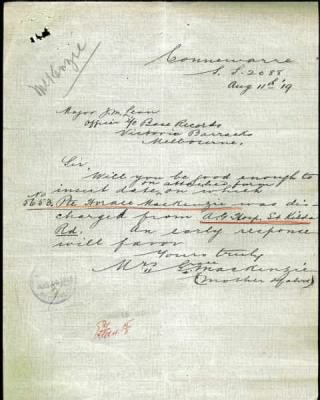 McKenzie
Connewarre
S. S. 2088
Aug 11th '19
Major J. M. Lean
Officer i/c Base Records
Victoria Barracks
Melbourne.
Sir,
Will you be good enough to
on attached form
insert date on which
No
5653. Pte Horace Mackenzie was dis-
charged from A. G. Hosp. St Kilda
Rd. An early response
will favor
Yours truly
Mrs G. Mackenzie
(mother of above)